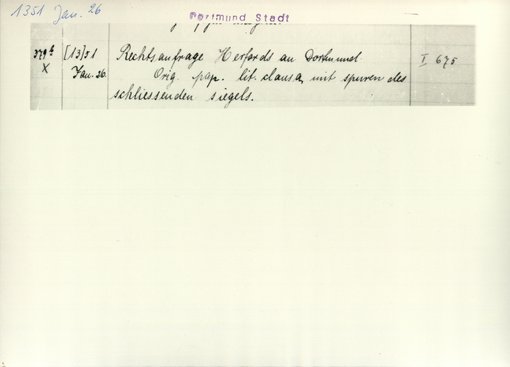 1351 Jan. 26
Dortmund Stadt
379b [13]51 Rechtsanfrage Herfords an Dortmund I 675
X Jan. 26. Orig. pap. lit. clausa, mit spuren des
schliessenden siegels.